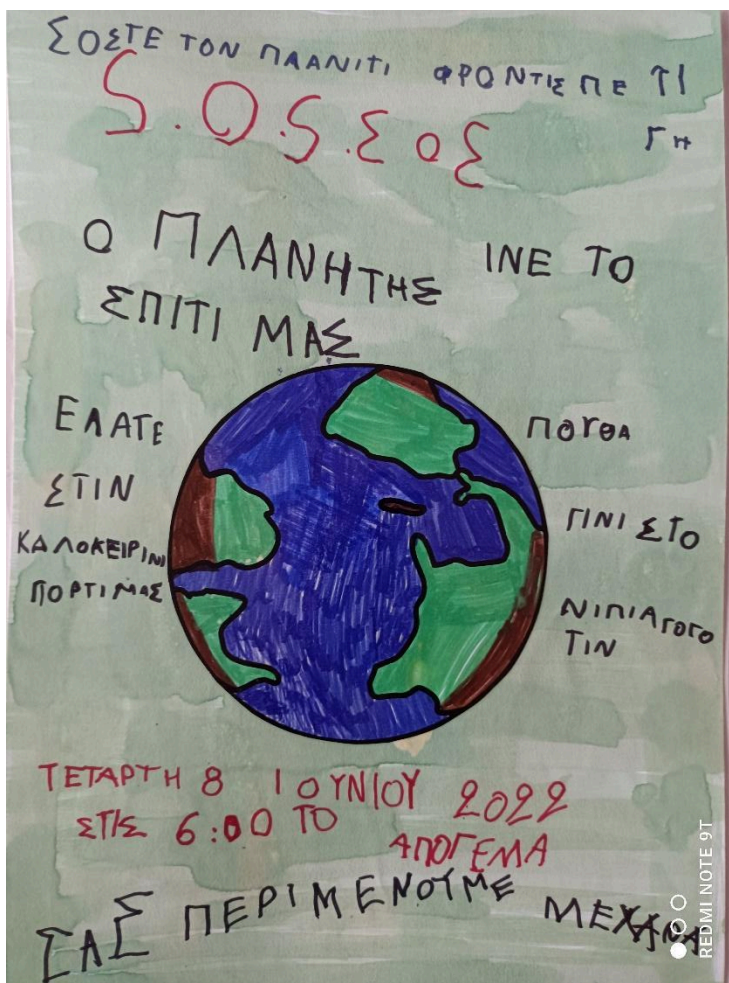 ΣΟΣΤΕ ΤΟΝ ΠΛΑΝΙΤΙ ΦΡΟΝΤΙΣΠΕ ΤΙ
ΓΗ
S.O.S.ΣΟΣ
Ο ΠΛΑΝΗΤΗΣ ΙΝΕ ΤΟ
ΣΠΙΤΙ ΜΑΣ
ΕΛΑΤΕ
ΣΤΙΝ
ΚΑΛΟΚΕΙΡΙΝΙ
ΓΙΟΡΤΙ ΜΑΣ
ΠΟΥ ΘΑ
ΓΙΝΙ ΣΤΟ
ΝΙΠΙΑΓΟΓΟ
ΤΙΝ
ΤΕΤΑΡΤΗ 8 ΙΟΥΝΙΟΥ 2022
ΣΤΙΣ 6:00 ΤΟ
ΑΠΟΓΕΜΑ
ΣΑΣ ΠΕΡΙΜΕΝΟΥΜΕ ΜΕΧΑΡΑ
REDMI NOTE 9T